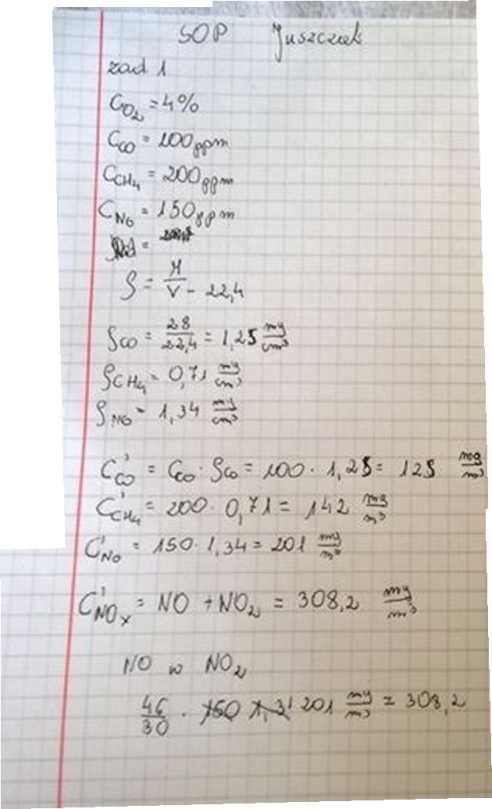 SOP Juszczak
zad 1
C_O₂ = 4%
C_CO = 100 ppm
C_CH₄ = 200 ppm
C_NO = 150 ppm
ρ = M/V - 22,4
ρ_CO = 28/22,4 = 1,25 mg/cm³
ρ_CH₄ = 0,71 mg/cm³
ρ_NO = 1,34 mg/cm³
C'_CO = C_CO · ρ_CO = 100 · 1,25 = 125 mg/m³
C'_CH₄ = 200 · 0,71 = 142 mg/m³
C'_NO = 150 · 1,34 = 201 mg/m³
C'_NOx = NO + NO₂ = 308,2 mg/m³
NO w NO₂
46/30 · 201 mg/m³ = 308,2